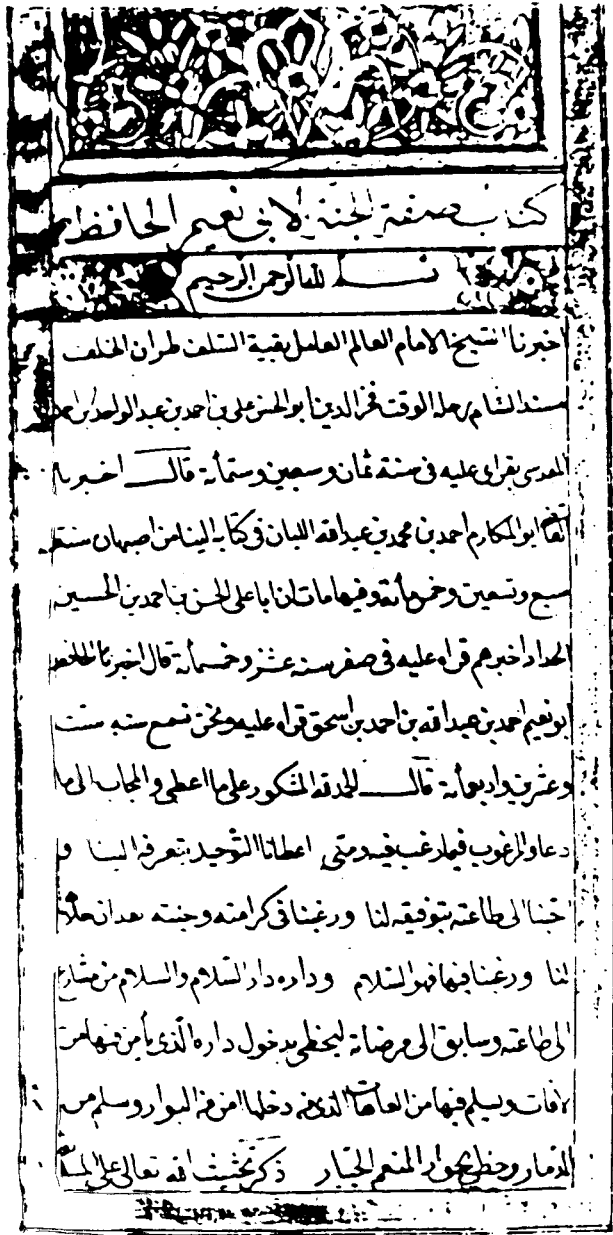 كتاب صفة الجنة لابي نعيم الحافظ
بسم الله الرحمن الرحيم
اخبرنا الشيخ الامام العالم العامل بقية السلف طراز الخلف
مسند الشام رحلة الوقت فخر الدين ابو الحسن على بن احمد بن عبد الواحد بن احمد
المقدسى بقراى عليه فى سنة ثمان وسبعين وستمأة قال اخبرنا
ابو المكارم احمد بن محمد بن عبد الله اللبان فى كتابه الينا من اصبهان سنة
سبع وتسعين وخمسمأة وفيها مات ان ابا على الحسن بن احمد بن الحسين
الحداد اخبرهم قراه عليه فى صفر سنه عشر وخمسمأة قال اخبرنا الحافظ
ابو نعيم احمد بن عبد الله بن احمد بن اسحق قراه عليه ونحن نسمع سنه ست
وعشرين واربعمأة قال الحمد لله المشكور على ما اعطى والمجاب الى ما
دعا والمرغوب فيما رغب فيه ومتى اعطانا التوحيد بتعرفه الينا و
اجبنا الى طاعته بتوفيقه لنا ورغبنا فى كرامته وجنته بعد ان
لنا ورغبنا فيها فهو السلام وداره دار السلام والسلام من
الى طاعته وسابق الى مرضاته ليحظى بدخول داره الذى يأمن فيها من
الافات ويسلم فيها من العاهات دخلها امن من البوار وسلم من
الدمار وحظى بجوار المنعم الجبار ذكر تحثيث الله تعالى على